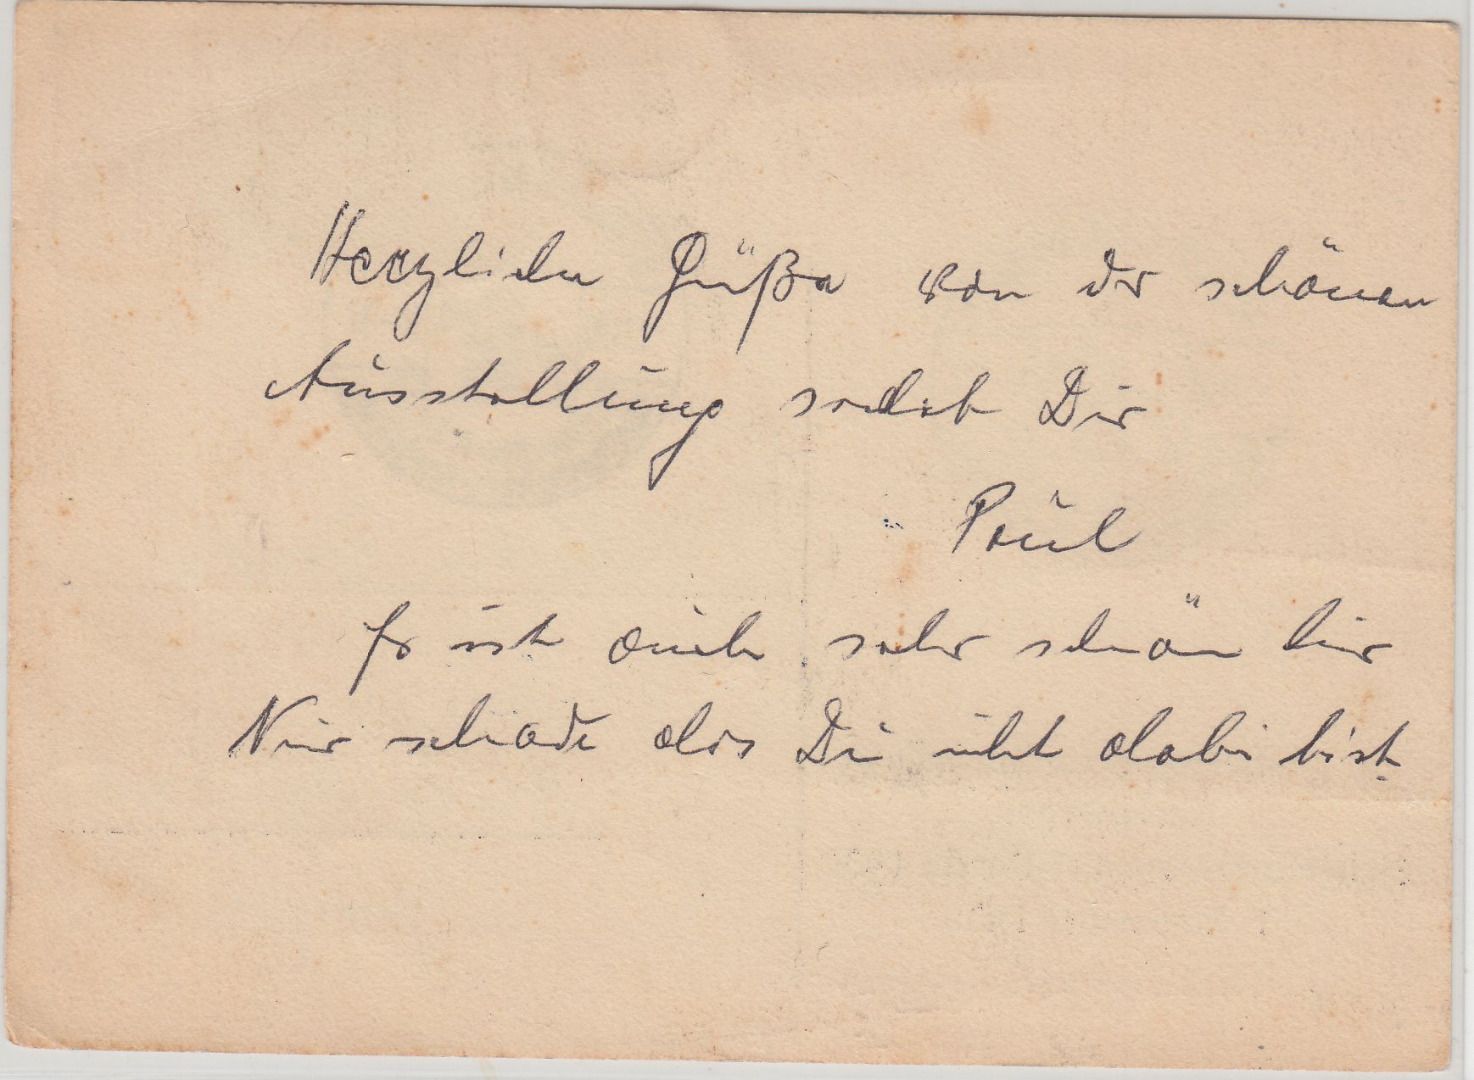 Herzliche Grüße von der schönen
Ausstellung sendet Dir
Paul
Es ist auch sehr schön hier
Nur schade das Du nicht dabei bist